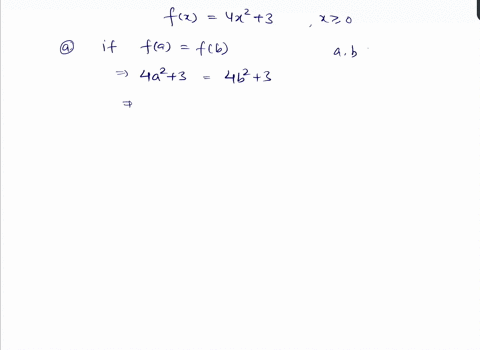 f(x) = 4x²+3 , x≥0
ⓐ if f(a) = f(b) a.b
⇒ 4a²+3 = 4b²+3
⇒